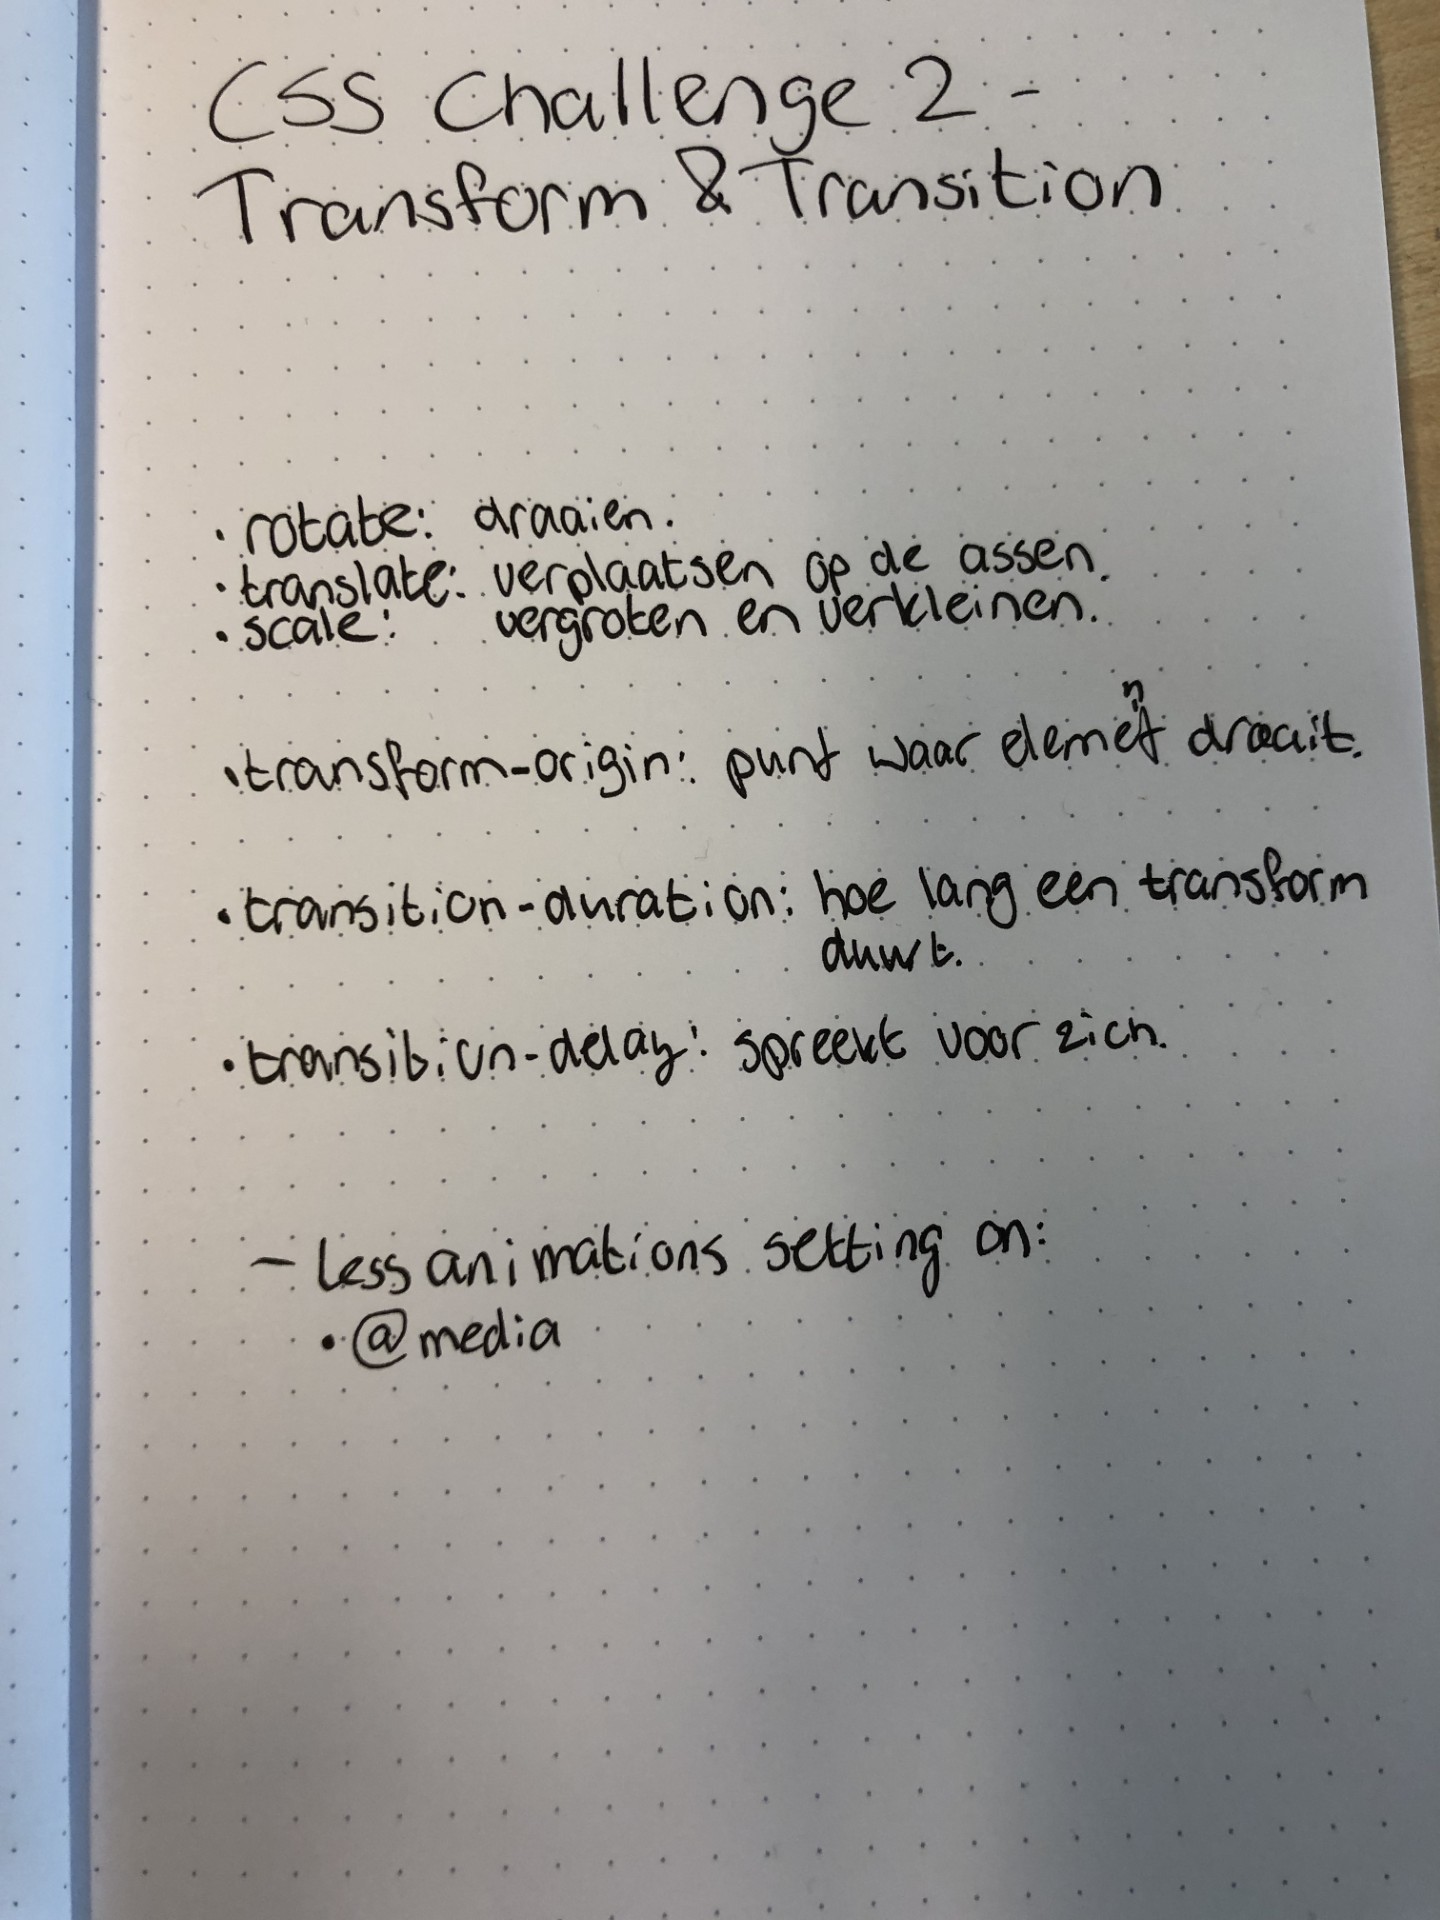 CSS Challenge 2 -
Transform & Transition
• rotate: draaien.
• translate: verplaatsen op de assen.
• scale: vergroten en verkleinen.
• transform-origin: punt waar element draait.
• transition-duration: hoe lang een transform
duurt.
• transition-delay: spreekt voor zich.
— less animations setting on:
• @media